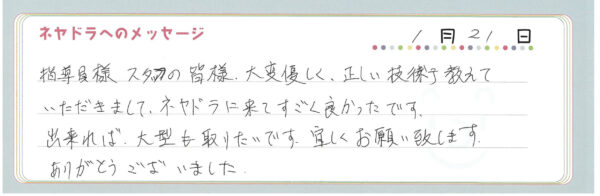 ネヤドラへのメッセージ
1月21日
指導員様 スタッフの皆様、大変優しく、正しい技術を教えて
いただきまして、ネヤドラに来てすごく良かったです。
出来れば、大型も取りたいです。宜しくお願い致します。
ありがとうございました。